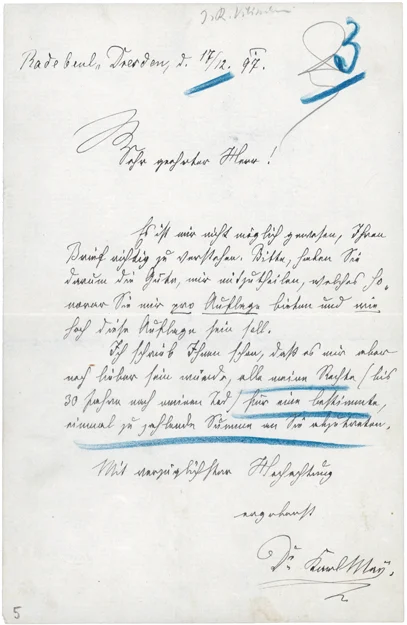 3
Radebeul-Dresden, d. 17/12. 97.
Sehr geehrter Herr!
Es ist mir nicht möglich gewesen, Ihren
Brief richtig zu verstehen. Bitte, haben Sie
darum die Güte, mir mitzutheilen, welches Ho,
norar Sie mir pro Auflage bieten und wie
hoch diese Auflage sein soll.
Ich schrieb Ihnen schon, daß es mir aber
noch lieber sein würde, alle meine Rechte (bis
30 Jahre nach meinem Tod) für eine bestimmte,
einmal zu zahlende Summe an Sie abzutreten.
Mit vorzüglichster Hochachtung
ergebenst
Dr. Karl May.
5